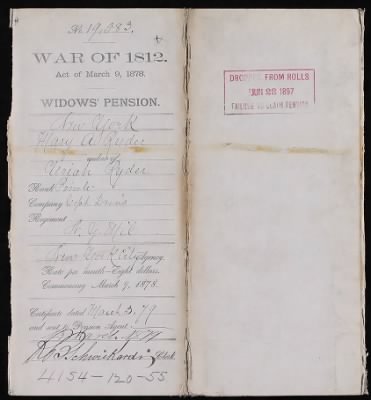 No. 19,083.
WAR OF 1812.
Act of March 9, 1878.
WIDOWS' PENSION.
New York
Mary A. Ryder
widow of
Ryder
Rank Private
Company Capt
Regiment
N. Y. Mil
New York City Agency.
Rate per month—Eight dollars.
Commencing March 9, 1878.
Certificate dated March 3, 79
and sent to Pension Agent:
Clerk.
4154-120-55
DROPPED FROM ROLLS
JUN 28 1897
FAILURE TO CLAIM PENSION